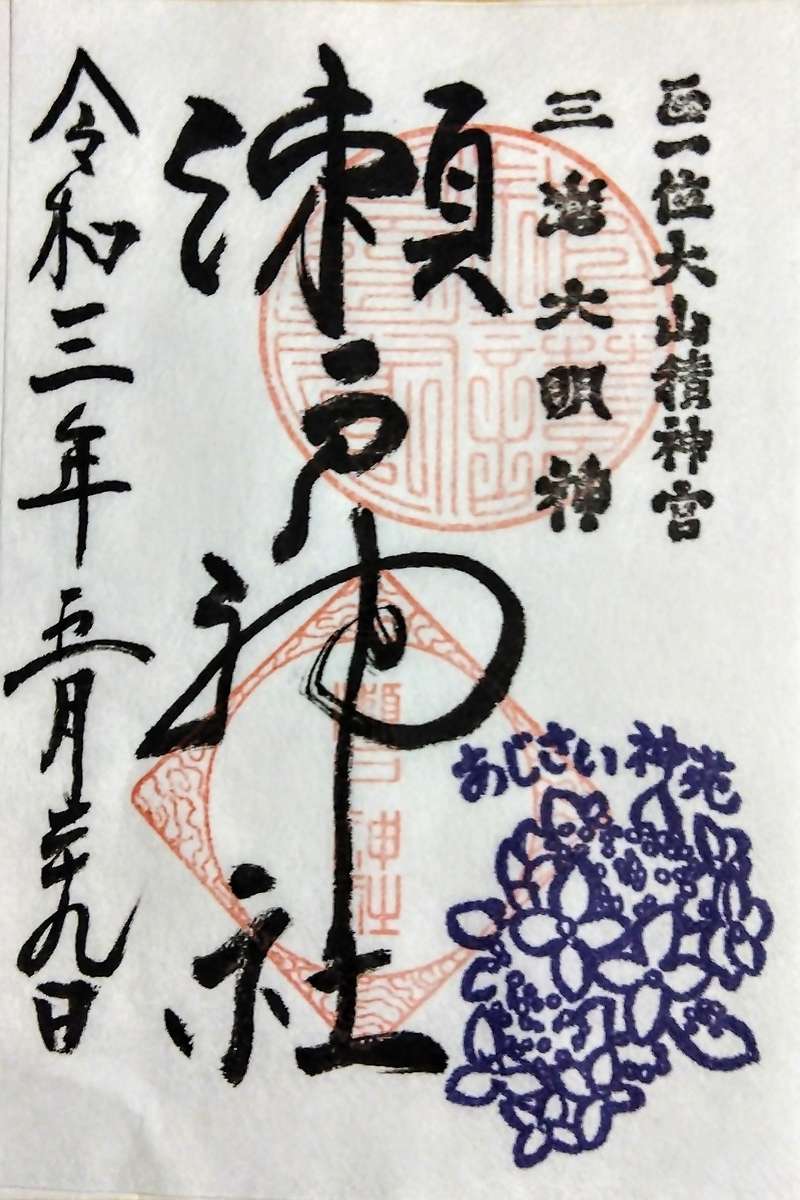 正一位大山積神宮
三嶌大明神
瀬戸神社
瀬戸神社
令和三年五月二十九日
あじさい神苑